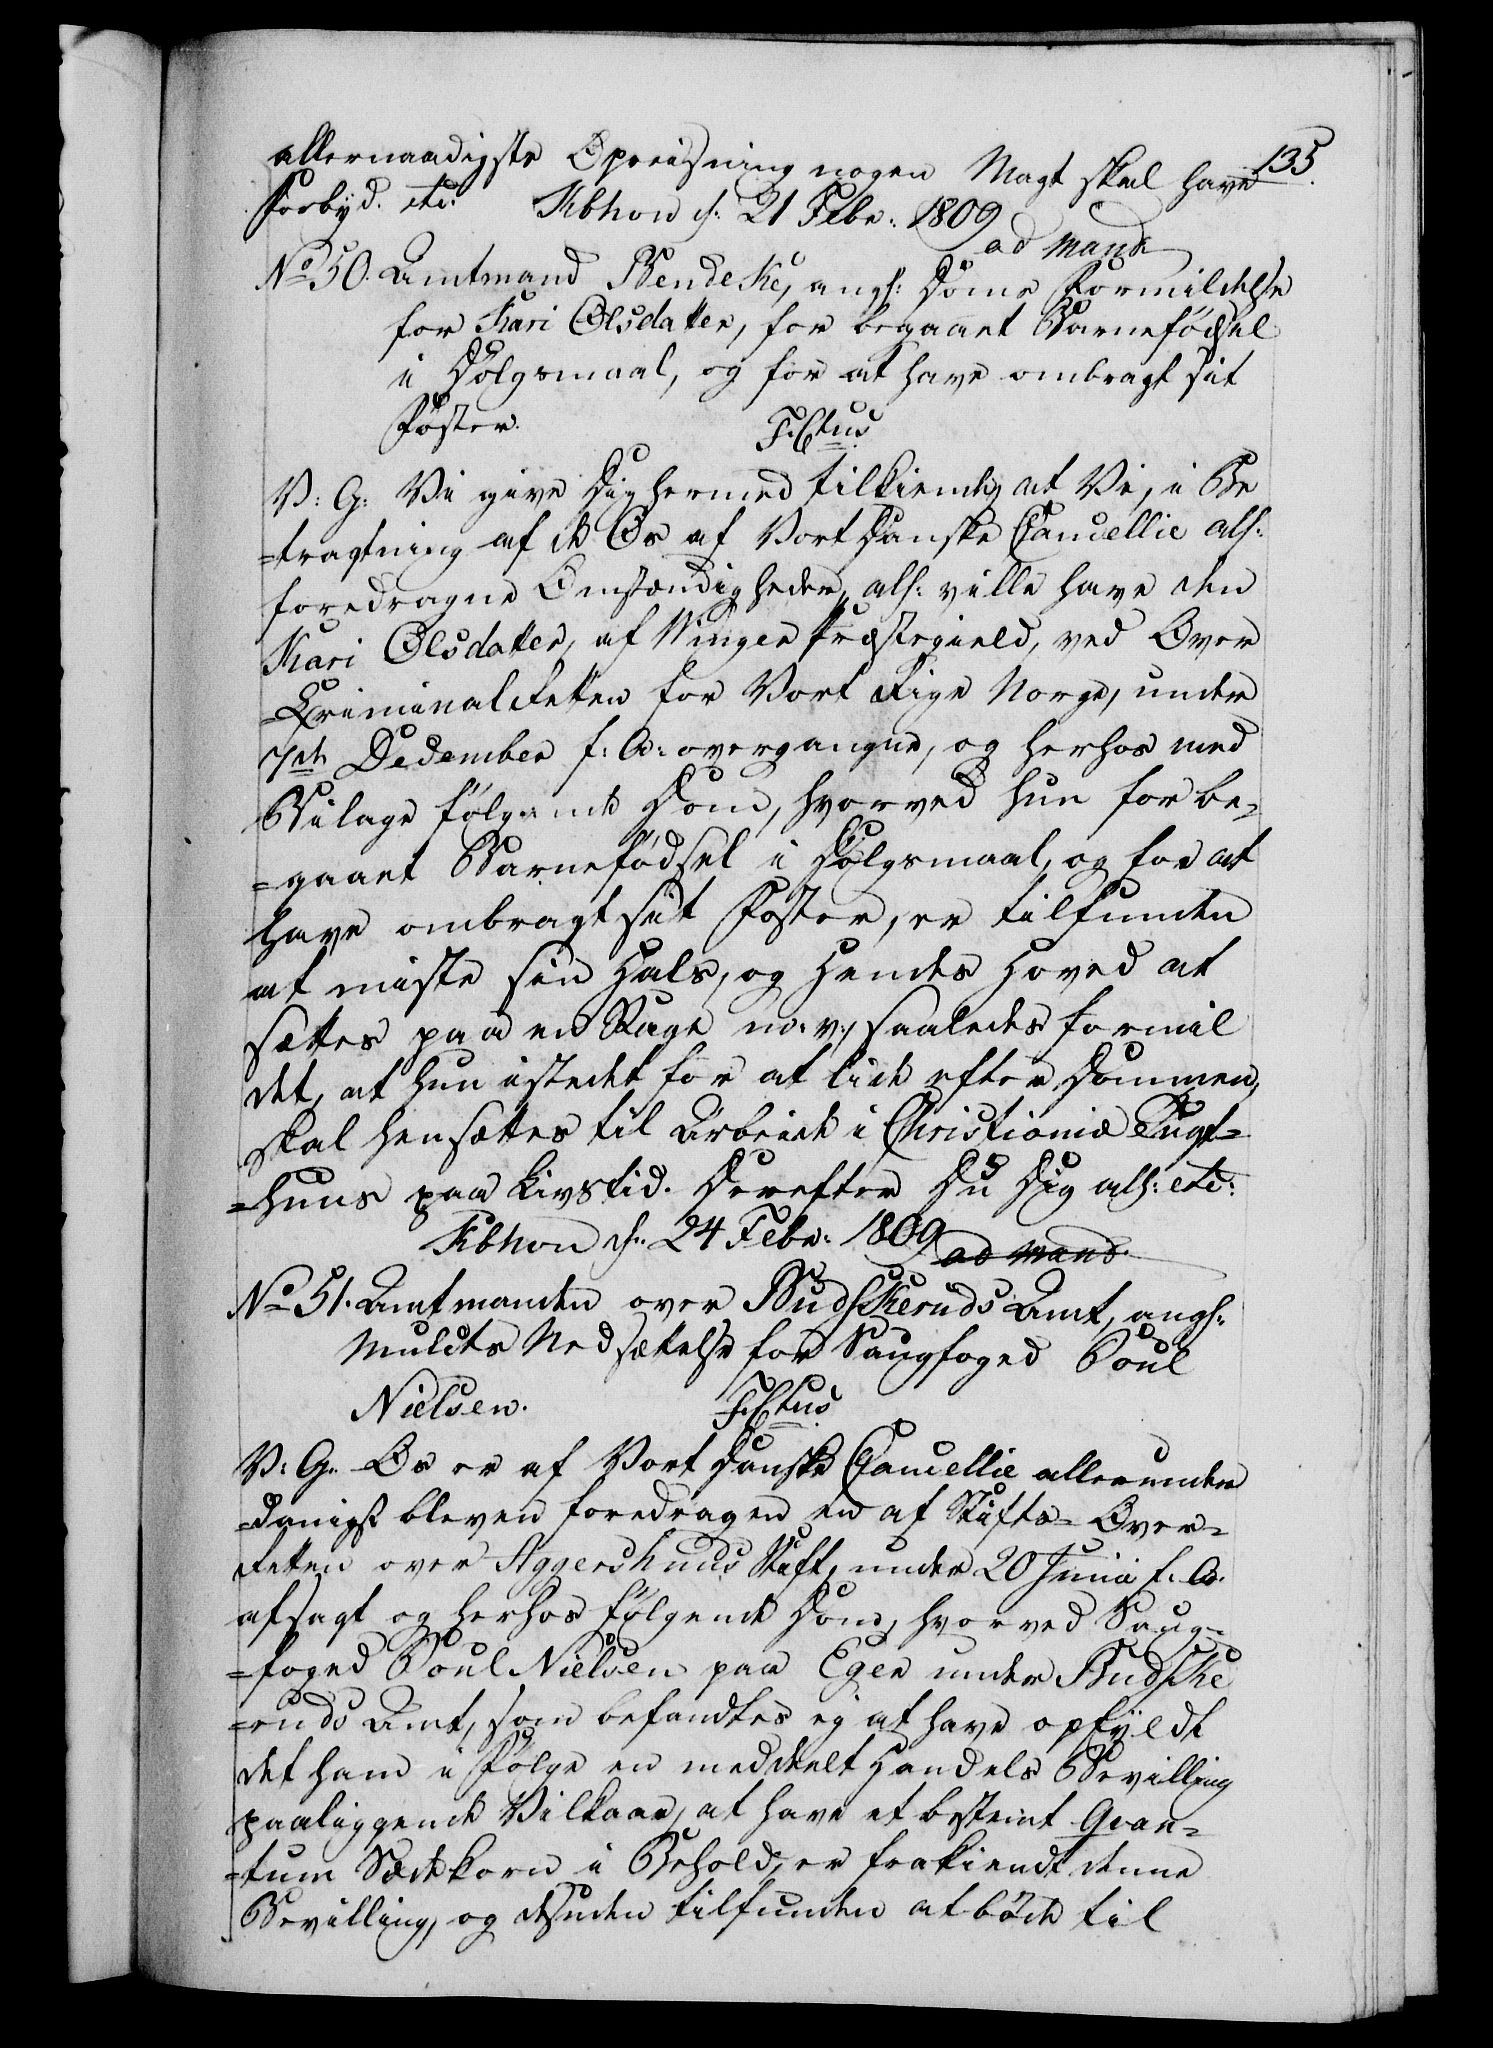 135.
allernaadigste Opreisning nogen Magt skal have
Forbyd. etc: Kbhvn d: 21 Febr: 1809
ad mand.
No 50. Amtmand Bendeke, angl: Doms Formildelse
for Kari Olsdatter, for begaaet Barnefödsel
i Dölgsmaal, og for at have ombragt sit
Foster. F: Ctus
V: G: Vi give Dig hermed tilkiende, at Vi, i Be
=tragtning af de Os af Vort Danske Cancellie all:
foredragne Omstændigheder, all: ville have den
Kari Olsdatter, af Winger Præstegield, ved Over
=Criminalretten for Vort Rige Norge, under
7de December f: A: overgangne, og herhos med
Bilage fölgende Dom, hvorved hun for be-
=gaaet Barnefödsel i Dölgsmaal, og for at
have ombragt sit Foster, er tilfunden
at miste sin Hals, og Hendes Hoved at
sættes paa en Stage m: v:, saaledes formil
det, at hun istedet for at lide efter Dommen,
skal hensættes til Arbeide i Christiania Tugt=
=huus paa Livstid. Derefter Du Dig all: etc:
Kbhvn d: 24 Febr: 1809 ad mand.
No 51. Amtmanden over Budskeruds Amt, angl:
Mulcts Nedsættelse for Saugfoged Poul
Nielsen. F: Ctus
V: G: Os er af Vort Danske Cancellie allerunder
=danigst bleven foredragen en af Stifts= Over=
retten over Aggershuus Stift, under 20 Junii f: A:
afsagt og herhos fölgende Dom, hvorved Saug=
=foged Poul Nielsen paa Eger under Budske
=ruds Amt, som befandtes ej at have opfyldt
det ham i Fölge en meddeelt Handels Bevilling
paaliggende Vilkaar, at have et bestemt Qvan=
=tum Sædekorn i Behold, er frakiendt denne
Bevilling, og desuden tilfunden at böde til